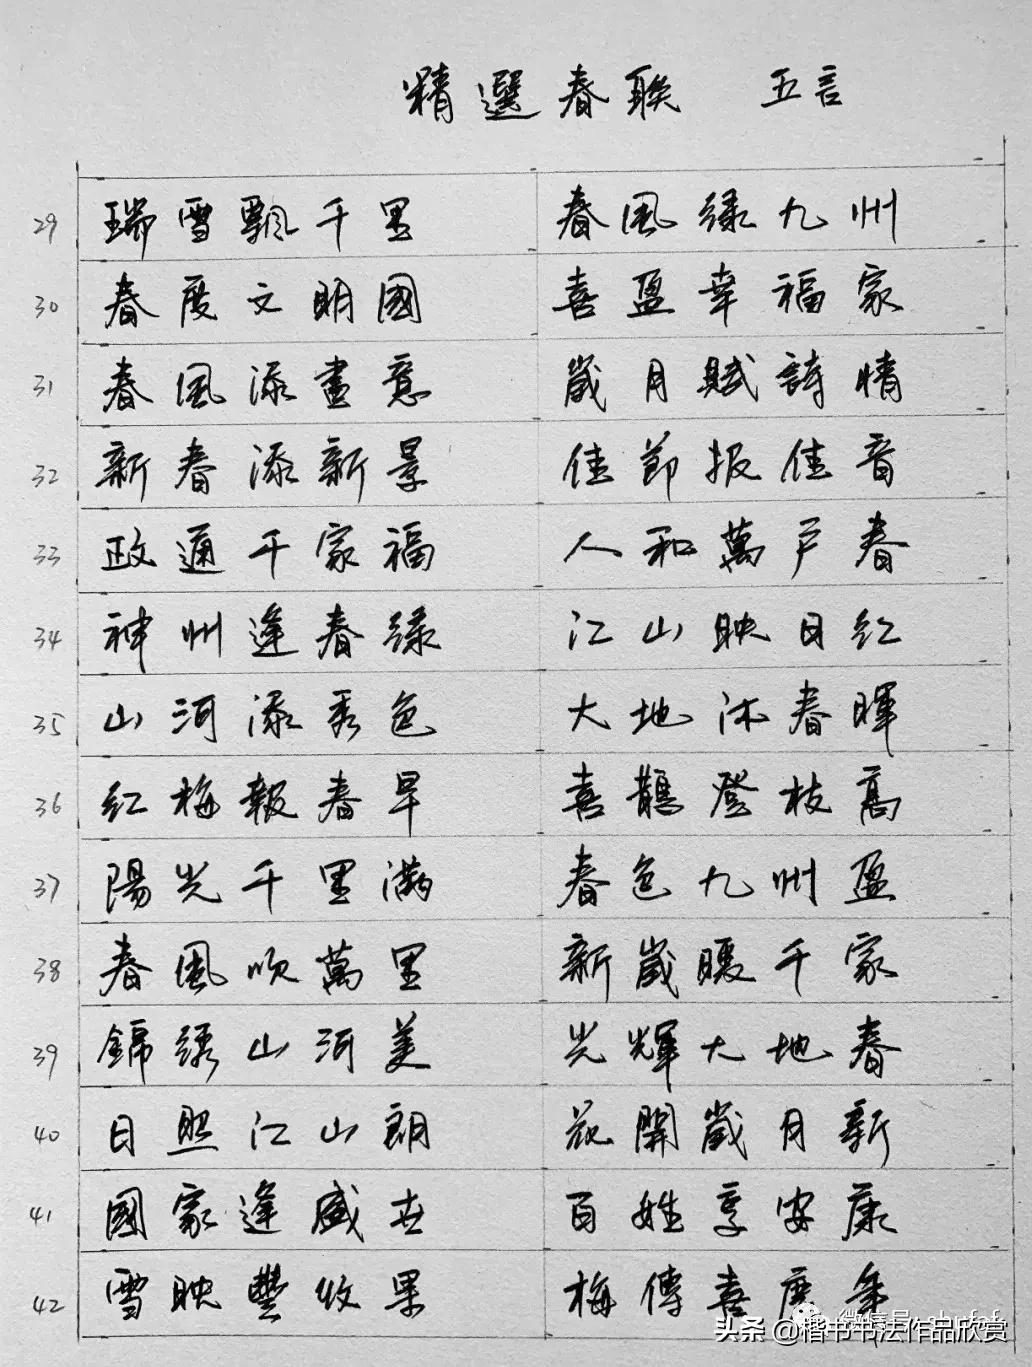 精選春联 五言
29 瑞雪飄千里 春風绿九州
30 春度文明國 喜盈幸福家
31 春風添畫意 歲月賦詩情
32 新春添新景 佳節报佳音
33 政通千家福 人和萬戶春
34 神州逢春绿 江山映日红
35 山河添秀色 大地沐春暉
36 红梅報春早 喜鵲登枝高
37 陽光千里满 春色九州盈
38 春風吹萬里 新歲暖千家
39 錦绣山河美 光輝大地春
40 日照江山朗 花開歲月新
41 國家逢盛世 百姓享安康
42 雪映豐收果 梅傳喜慶年
微信号
头条 @楷书书法作品欣赏